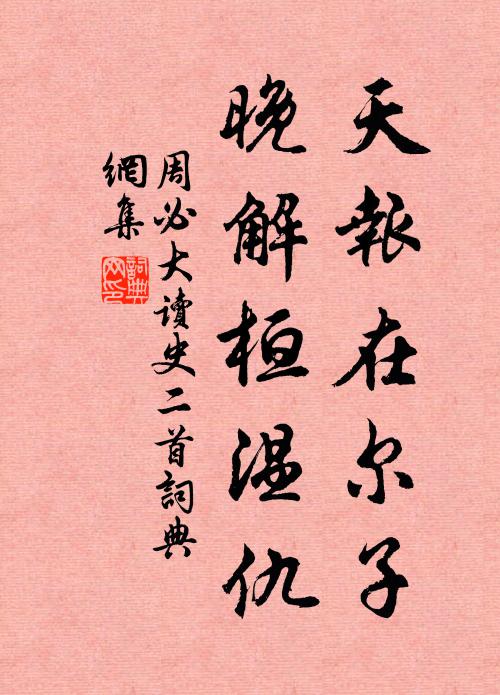 天報在尔子
晚解桓温仇
周必大讀史二首詞典
網集
詞典網印